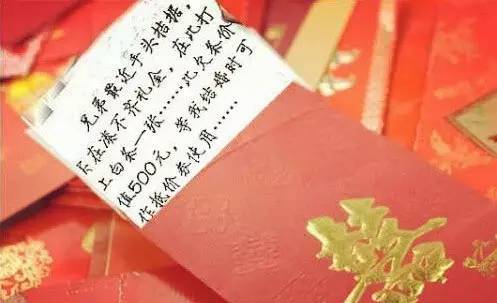 兄弟最近手头拮据,
实在凑不齐礼金,在此打
上白条一张……此欠条价
值500元,等我结婚时可
作抵价券使用……